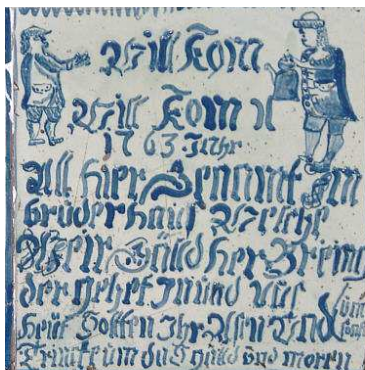 Will Kom
Will Kom
1763 Jahr
All hier Genannt Im
brüderhauß Welche
Wein Gälld her Bring
der gehet in und
heüt Sollten Ihr Und
Trincken um das Gälld und morren